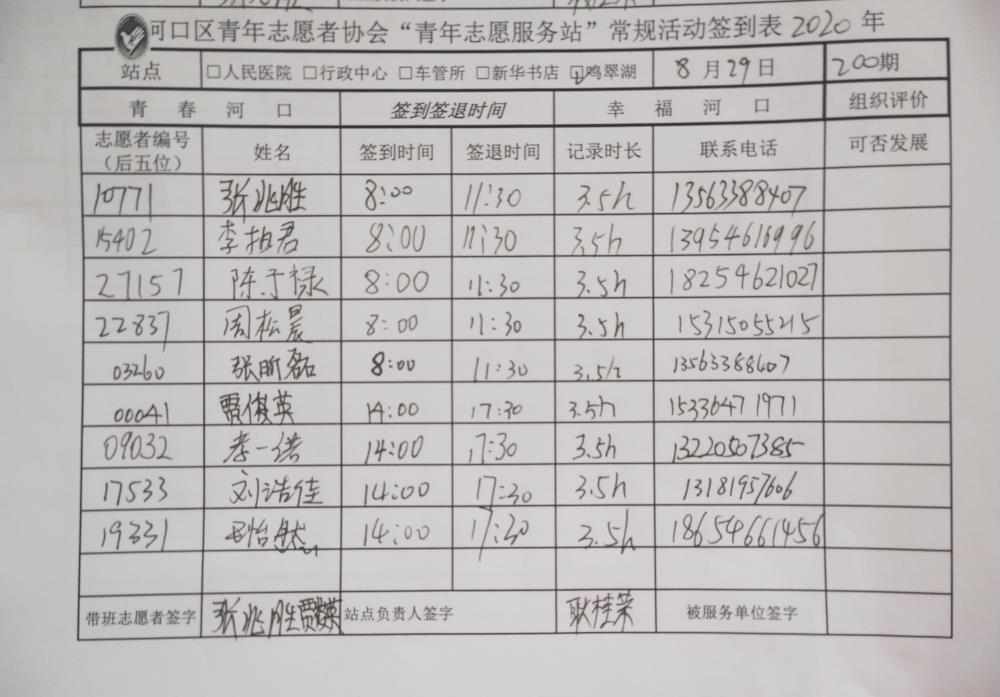 河口区青年志愿者协会“青年志愿服务站”常规活动签到表 2020 年
站点 □人民医院 □行政中心 □车管所 □新华书店 ☑鸣翠湖 8 月 29 日 200期
青 春 河 口 签到签退时间 幸 福 河 口 组织评价
志愿者编号（后五位） 姓名 签到时间 签退时间 记录时长 联系电话 可否发展
10771 张兆胜 8:00 11:30 3.5h 13563388407
15402 李柏君 8:00 11:30 3.5h 13954616996
27157 陈予禄 8:00 11:30 3.5h 18254621027
22837 周松晨 8:00 11:30 3.5h 15315055215
03260 张昕磊 8:00 11:30 3.5h 13563388407
00041 贾俊英 14:00 17:30 3.5h 15336471971
09032 李一诺 14:00 17:30 3.5h 13220507385
17533 刘浩佳 14:00 17:30 3.5h 13181957606
19331 怡然 14:00 17:30 3.5h 18654661456
带班志愿者签字 张兆胜 贾俊英 站点负责人签字 耿桂荣 被服务单位签字